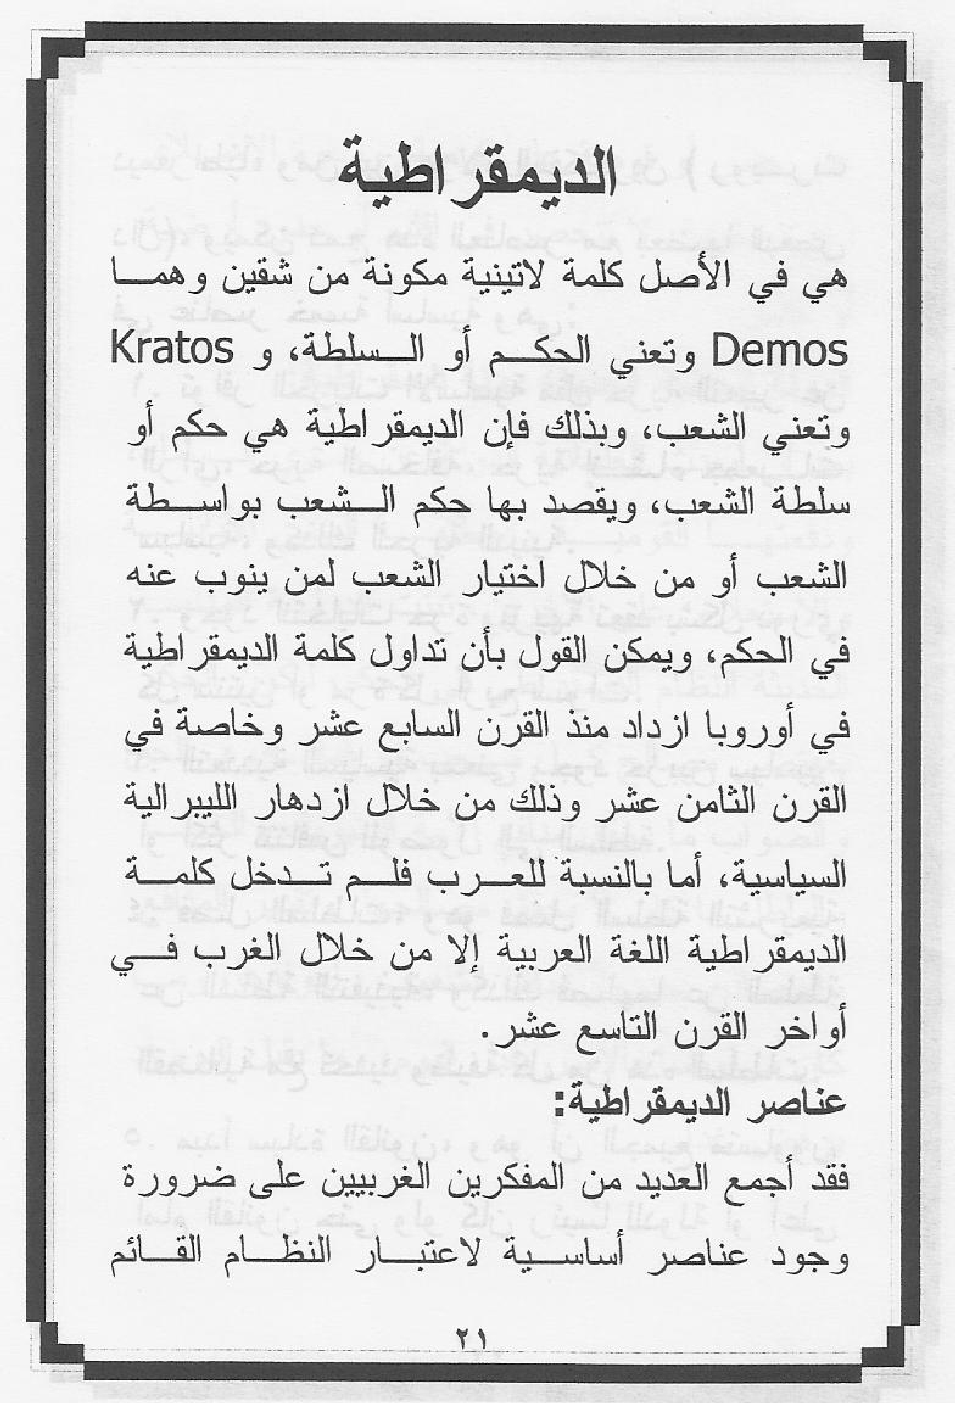 الديمقراطية
هي في الأصل كلمة لاتينية مكونة من شقين وهما
Demos وتعني الحكم أو السلطة، و Kratos
وتعني الشعب، وبذلك فإن الديمقراطية هي حكم أو
سلطة الشعب، ويقصد بها حكم الشعب بواسطة
الشعب أو من خلال اختيار الشعب لمن ينوب عنه
في الحكم، ويمكن القول بأن تداول كلمة الديمقراطية
في أوروبا ازداد منذ القرن السابع عشر وخاصة في
القرن الثامن عشر وذلك من خلال ازدهار الليبرالية
السياسية، أما بالنسبة للعرب فلم تدخل كلمة
الديمقراطية اللغة العربية إلا من خلال الغرب في
أواخر القرن التاسع عشر.
عناصر الديمقراطية:
فقد أجمع العديد من المفكرين الغربيين على ضرورة
وجود عناصر أساسية لاعتبار النظام القائم
٢١